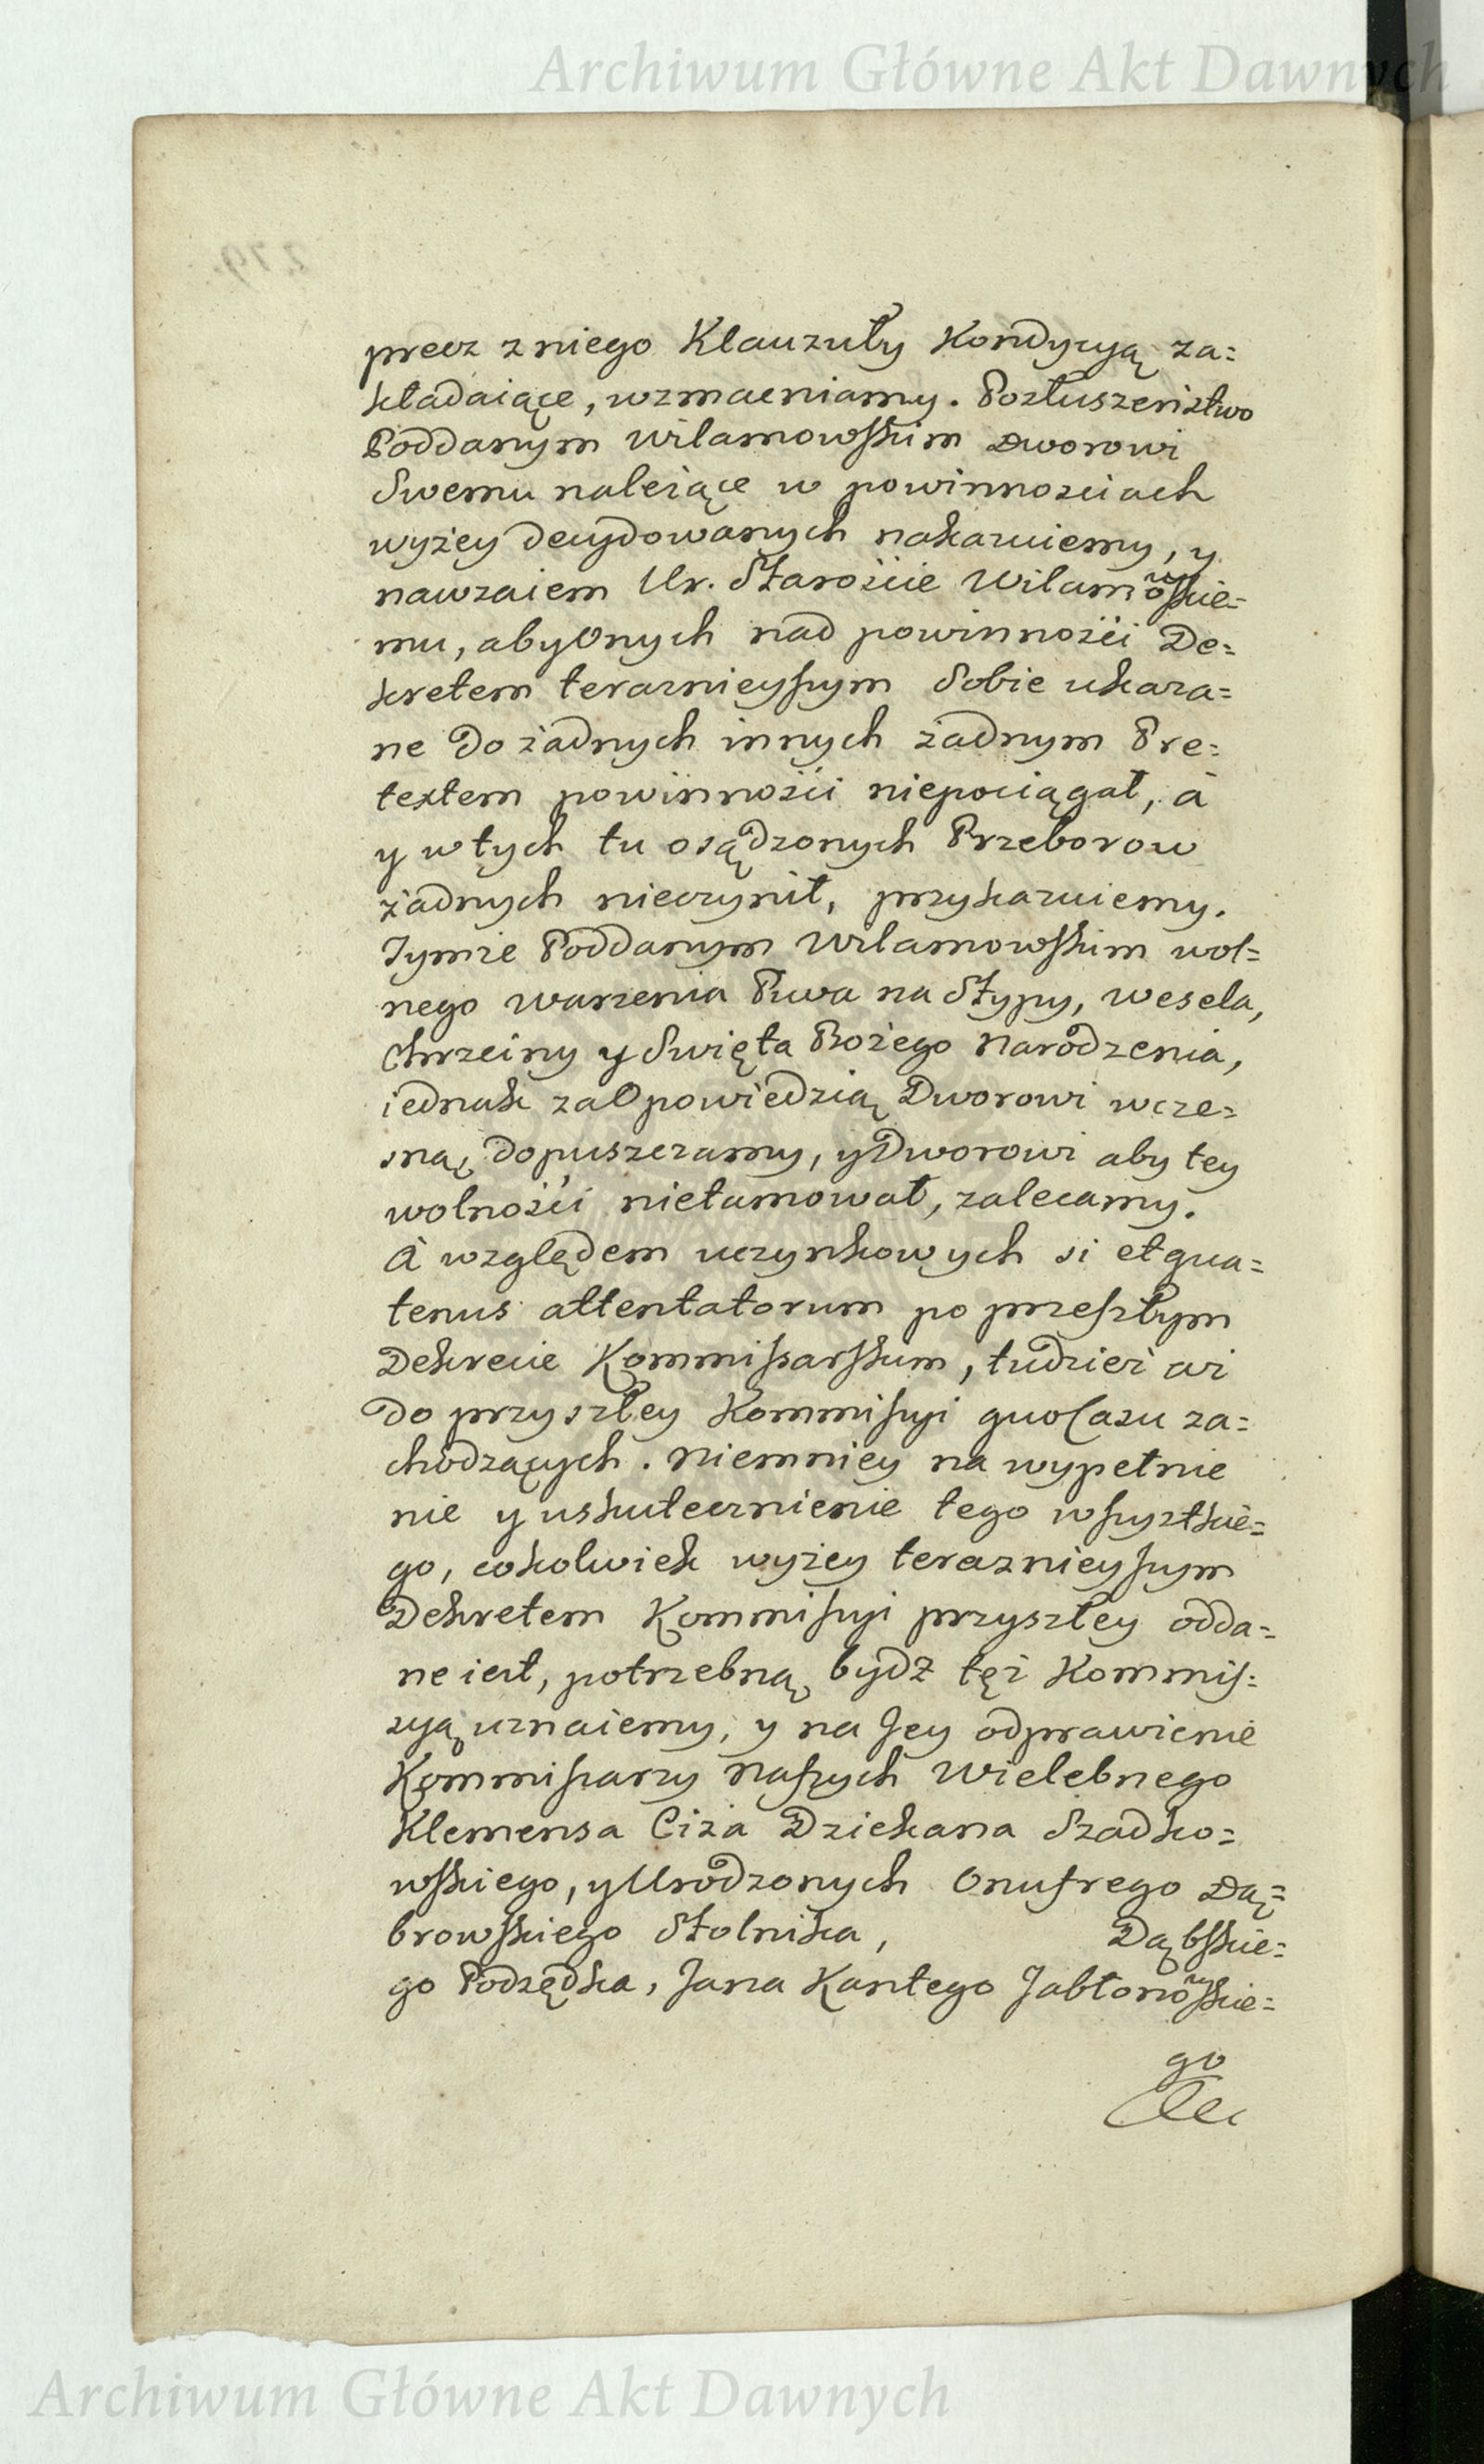 Archiwum Główne Akt Dawnych
279.
precz z niego Klauzuły Kondycyą za=
kładaiące, wzmacniamy. Posłuszeństwo
Poddanym Wilamowskim Dworowi
Swemu należące w powinnosciach
wyżey decydowanych nakazuiemy, y
nawzaiem Ur. Starośćie Wilamowskie=
mu, aby Onych nad powinnośći De=
kretem teraznieyszym Sobie ukaza=
ne do żadnych innych żadnym Pre=
textem powinnośći niepociągał, à
y w tych tu osądzonych Przeborow
żadnych nieczynił, przykazuiemy.
Tymże Poddanym Wilamowskim wol=
nego warzenia Piwa na Stypy, wesela,
Chrzciny y Swięta Bożego Narodzenia,
iednak za Opowiedzią Dworowi wcze=
sną dopuszczamy, y Dworowi aby tey
wolnośći nietamował, zalecamy.
A względem uczynkowych si et qua=
tenus attentatorum po przeszłym
Dekrecie Kommissarskim, tudzież aż
do przyszłey Kommissyi quo Casu za=
chodzących. Niemniey na wypełnie
nie y uskutecznienie tego wszystkie=
go, cokolwiek wyżey teraznieyszym
Dekretem Kommissyi przyszłey odda=
ne iest, potrzebną bydź tęż Kommis=
syą uznaiemy, y na Jey odprawienie
Kommissarzy Naszych Wielebnego
Klemensa Ciża Dziekana Szadko=
wskiego, y Urodzonych Onufrego Dą=
browskiego Stolnika, Dąbskie=
go Podsędka, Jana Kantego Jabłonowskie=
go
Archiwum Główne Akt Dawnych